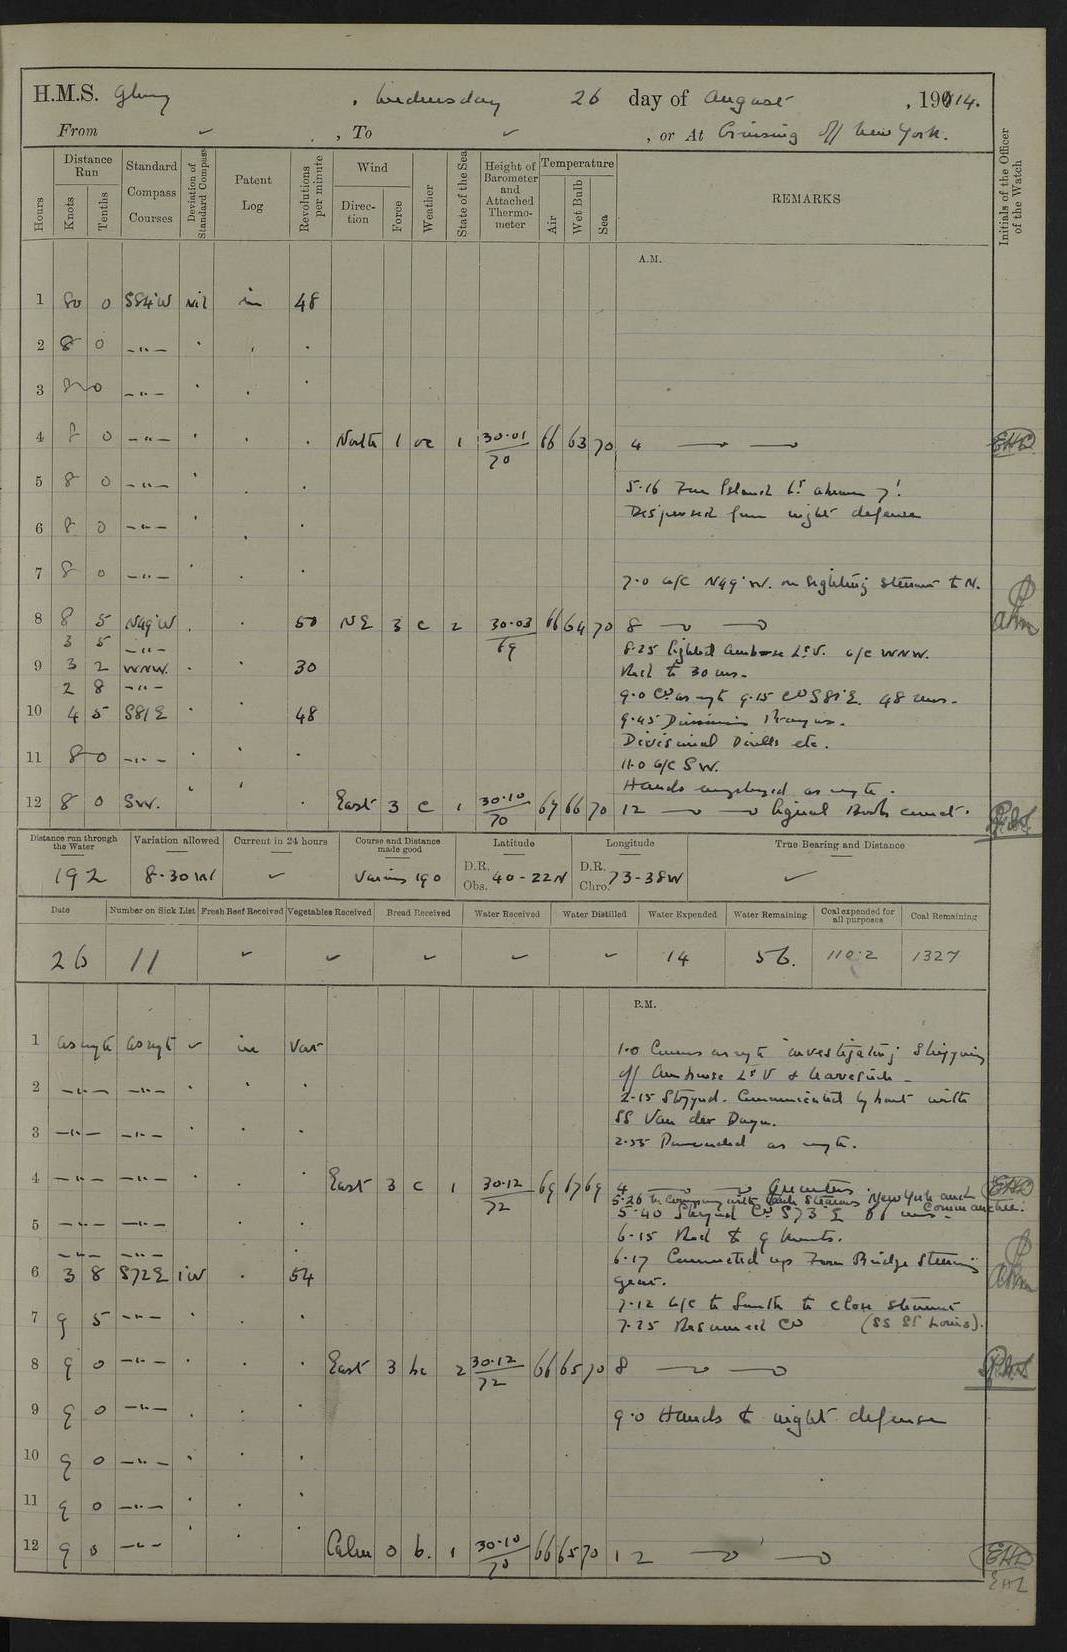 H.M.S. Glory, Wednesday 26 day of August, 1914.
From ✓, To ✓, or At Cruising off New York.
Hours
Distance Run
Knots
Tenths
Standard Compass Courses
Deviation of Standard Compass
Patent Log
Revolutions per minute
Wind
Direction
Force
Weather
State of the Sea
Height of Barometer and Attached Thermometer
Temperature
Air
Wet Bulb
Sea
REMARKS
Initials of the Officer of the Watch
A.M.
1 80 0 S84°W Nil in 48
2 8 0 –"– . . .
3 8 0 –"– . . .
4 8 0 –"– . . . North 1 oc 1 30.01/70 66 63 70 4 EHD
5 8 0 –"– . . .
5.16 Fire Island Lt abeam 7'.
Dispersed from night defence
6 8 0 –"– . . .
7 8 0 –"– . . .
7.0 a/c N49°W. on sighting steamer to N.
8 8 5 N49°W . . 50 NE 3 c 2 30.03/69 66 64 70 8
3 5 –"–
8.25 Sighted Ambrose Lt V. a/c WNW.
9 3 2 WNW. . . 30
Red to 30 revs.
2 8 –"–
9.0 Co as reqte 9.15 Co S81°E. 48 revs.
10 4 5 S81E . . 48
9.45 Divisions Prayers.
Divisional Drills etc.
11 8 0 –"– . . .
11.0 a/c SW.
Hands employed as reqte.
12 8 0 SW. . . . East 3 c 1 30.10/70 67 66 70 12 Signal Books correct.
Distance run through the Water 192
Variation allowed 8.30W
Current in 24 hours ✓
Course and Distance made good Various 190
Latitude D.R. Obs. 40-22N
Longitude D.R. Chro. 73-38W
True Bearing and Distance ✓
Date Number on Sick List Fresh Beef Received Vegetables Received Bread Received Water Received Water Distilled Water Expended Water Remaining Coal expended for all purposes Coal Remaining
26 11 ✓ ✓ ✓ ✓ ✓ 14 56. 110.2 1327
P.M.
1 as reqte as reqte ✓ in Var
1.0 Courses as reqte investigating Shipping
off Ambrose Lt V &
2 –"– –"– . . .
2.15 Stopped. Communicated by boat with
SS Van der Duyn.
3 –"– –"– . . .
2.55 Proceeded as reqte.
4 –"– –"– . . . East 3 c 1 30.12/72 69 67 69 4 Quarters EHD
5.26 In Company with Tank Steamers New York and Comanchee.
5.40 Shaped Co S73°E revs.
5 –"– –"– . . .
6.15 Red to 9 knots.
–"– –"–
6.17 Connected up Fore Bridge Steering
6 3 8 S72E 1W . 54
gear.
7.12 a/c to South to close steamer
7 9 5 –"– . . .
7.25 Resumed Co (SS St Louis).
8 9 0 –"– . . . East 3 bc 2 30.12/72 66 65 70 8
9 9 0 –"– . . .
9.0 Hands to night defence
10 9 0 –"– . . .
11 9 0 –"– . . .
12 9 0 –"– . . . Calm 0 b. 1 30.10/70 66 65 70 12 EHD